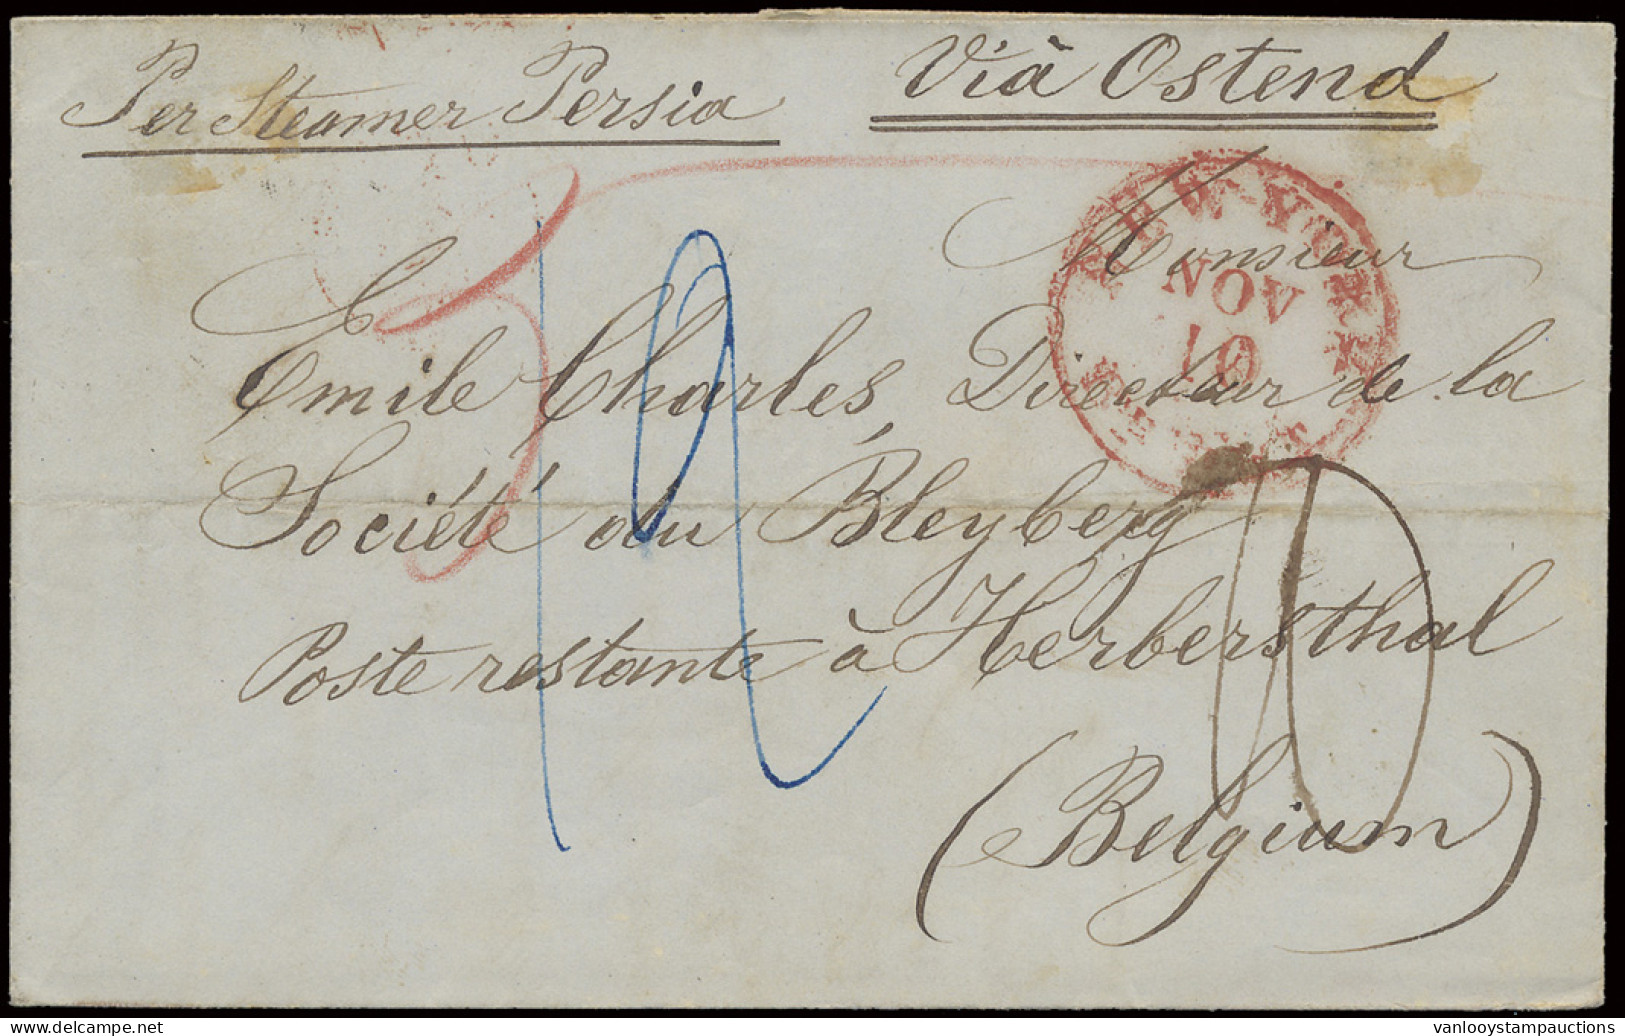 Per Steamer Persia
Viâ Ostend
NEW-YORK
NOV
10
Monsieur
Emile Charles, Directeur de la
Société du Bleyberg
Poste restante à Herbersthal
(Belgium)
delcampe.net
vanlooystampauctions